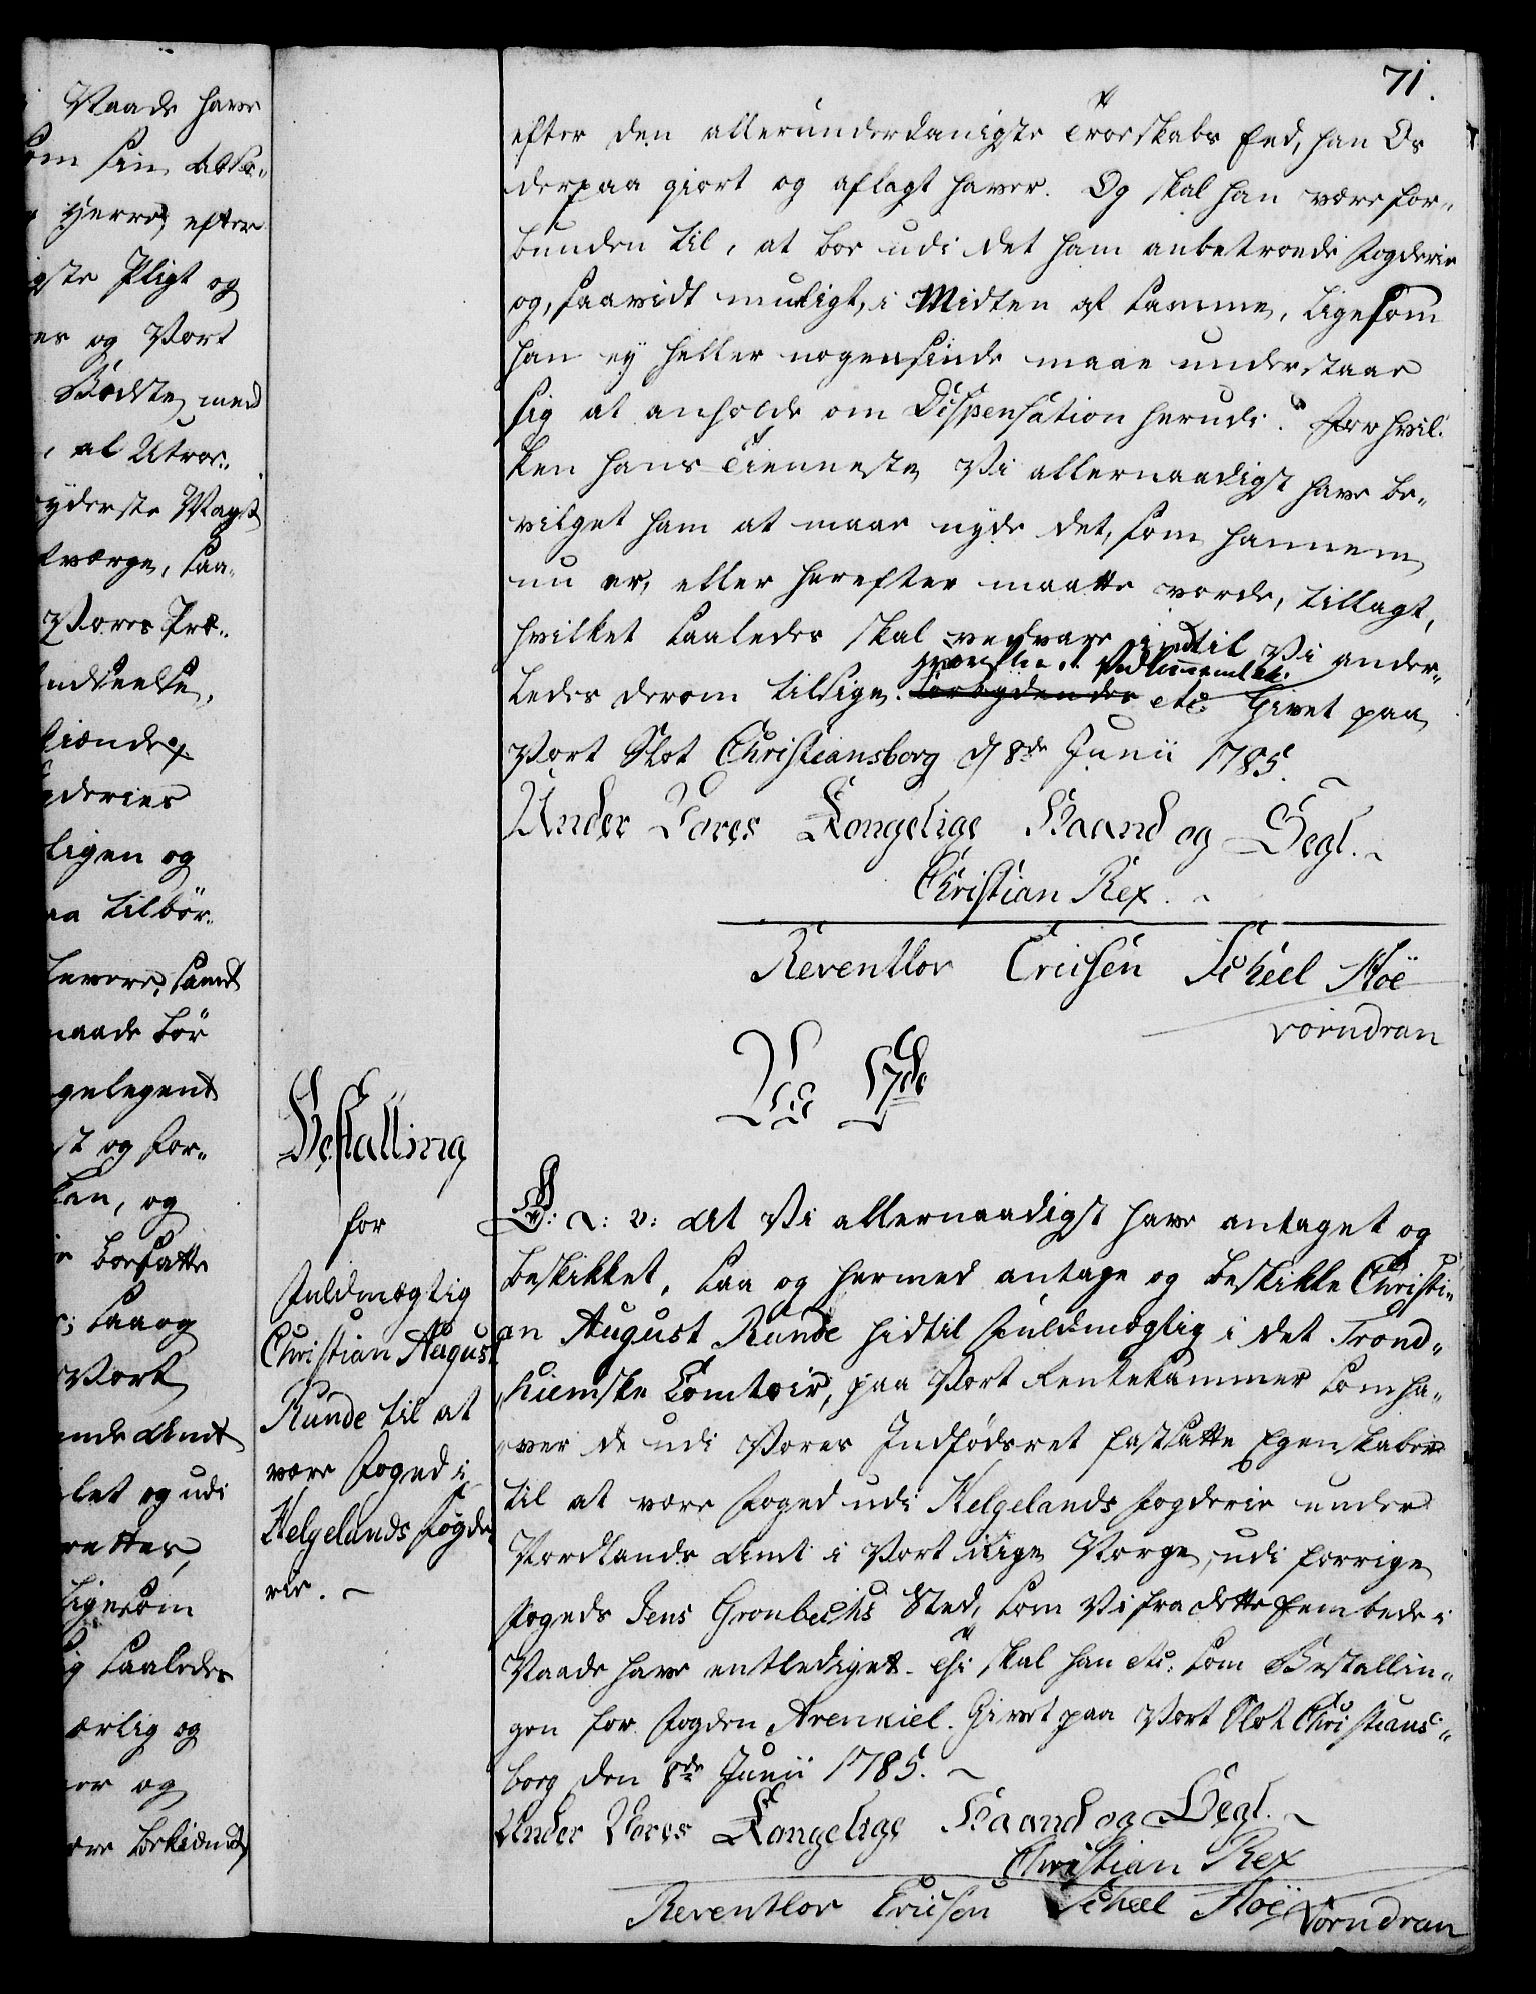 Naade have
som sin Abso-
Herre, efter
gste Pligt og
es og Vort
Bedste, med
, al Utroe-
yderste Magt
værge, saa-
Vores Præ-
ndseelse,
kiendes
gderies
ligen og
aa tilbør-
levere, samt
maade bør
gelegent
st og for-
kan, og
besatte
saa og
Vort
ende Amt
let og udi
rettes,
ligesom
sig saaledes
ærlig og
er og
være bekiendt
71.
efter den allerunderdanigste Troeskabs Eed, han Os
derpaa giort og aflagt haver. Og skal han være for-
bunden til, at boe udi det ham anbetroede Fogderie
og, saavidt muligt, i Midten af samme, ligesom
han ey heller nogensinde maae understaae
sig at anholde om Dispensation herudi. For hvil-
ken hans Tienneste, Vi allernaadigst have be-
vilget ham at maae nyde det, som hannem
nu er, eller herefter maatte vorde, tillagt,
hvilket saaledes skal vedvare indtil Vi ander-
ledes derom tilsige. etc: Givet paa
Vort Slot Christiansborg d 8de Junii 1785.
Under Vores Kongelige Haand og Segl.
Christian Rex.
Reventlov Ericsen Scheel Hoë
Vorndran
Vii 17de
Bestalling
for
Fuldmægtig
Christian August
Runde til at
være Foged i
Helgelands Fogde-
rie.
G: A: V: At Vi allernaadigst have antaget og
beskikket, saa og hermed antage og beskikke Christi-
an August Runde hidtil Fuldmægtig i det Trond-
hiemske Comtoir, paa Vort Rentekammer som ha-
ver de udi Vores Indfødsret fastsatte Egenskaber
til at være Foged udi Helgelands Fogderie under
Nordlands Amt i Vort Rige Norge, udi forrige
Fogeds Jens Gronbechs Sted, som Vi fra dette Embede i
Naade have entlediget. Thi skal han etc: som Bestallin-
gen for Fogden Arenkiel. Givet paa Vort Slot Christians-
borg den 8de Junii 1785.
Under Vores Kongelige Haand og Segl.
Christian Rex
Reventlov Ericsen Scheel Hoë Vorndran